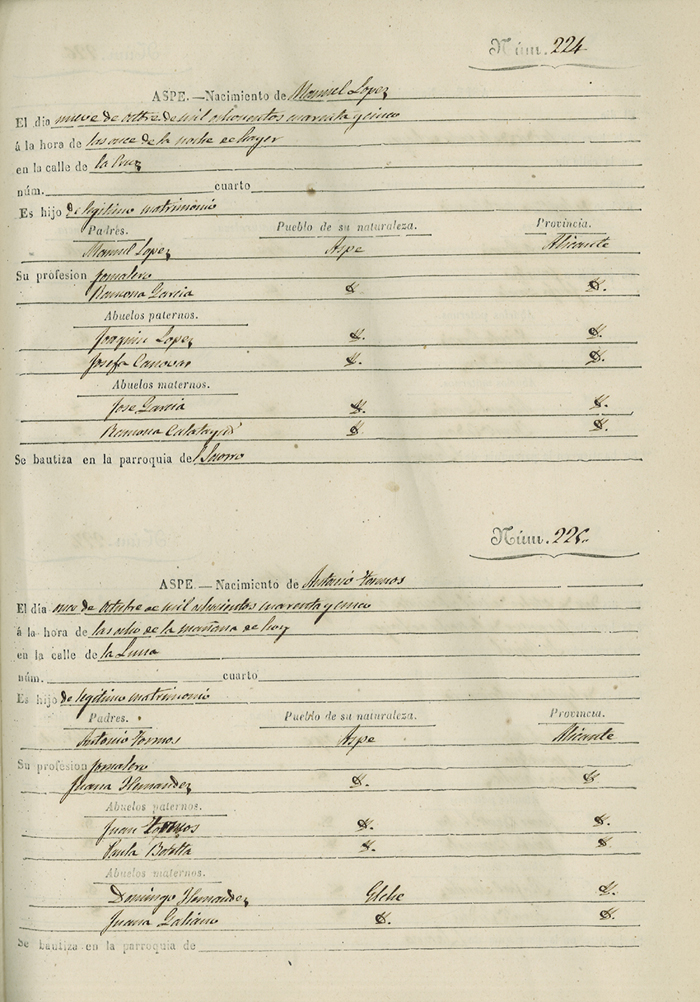 Núm. 224
ASPE.—Nacimiento de Manuel Lopez
El dia nueve de octbre de mil ochocientos cuarenta y cinco
á la hora de las once de la noche de hayer
en la calle de la Cruz
núm. cuarto
Es hijo de legitimo matrimonio
Padres. Pueblo de su naturaleza. Provincia.
Manuel Lopez Aspe Alicante
Su profesion jornalero
Ramona Garcia
Abuelos paternos.
Joaquin Lopez
Josefa Canovas
Abuelos maternos.
Jose Garcia
Ramona Calatayud
Se bautiza en la parroquia de
Núm. 225
ASPE.—Nacimiento de Antonio Tormos
El dia once de octubre de mil ochocientos cuarenta y cinco
á la hora de las ocho de la mañana de hoy
en la calle de la Luna
núm. cuarto
Es hijo de legitimo matrimonio
Padres. Pueblo de su naturaleza. Provincia.
Antonio Tormos Aspe Alicante
Su profesion jornalero
Juana Hernandez
Abuelos paternos.
Juan Tormos
Paula Botella
Abuelos maternos.
Domingo Hernandez Elche
Juana Galiano
Se bautiza en la parroquia de